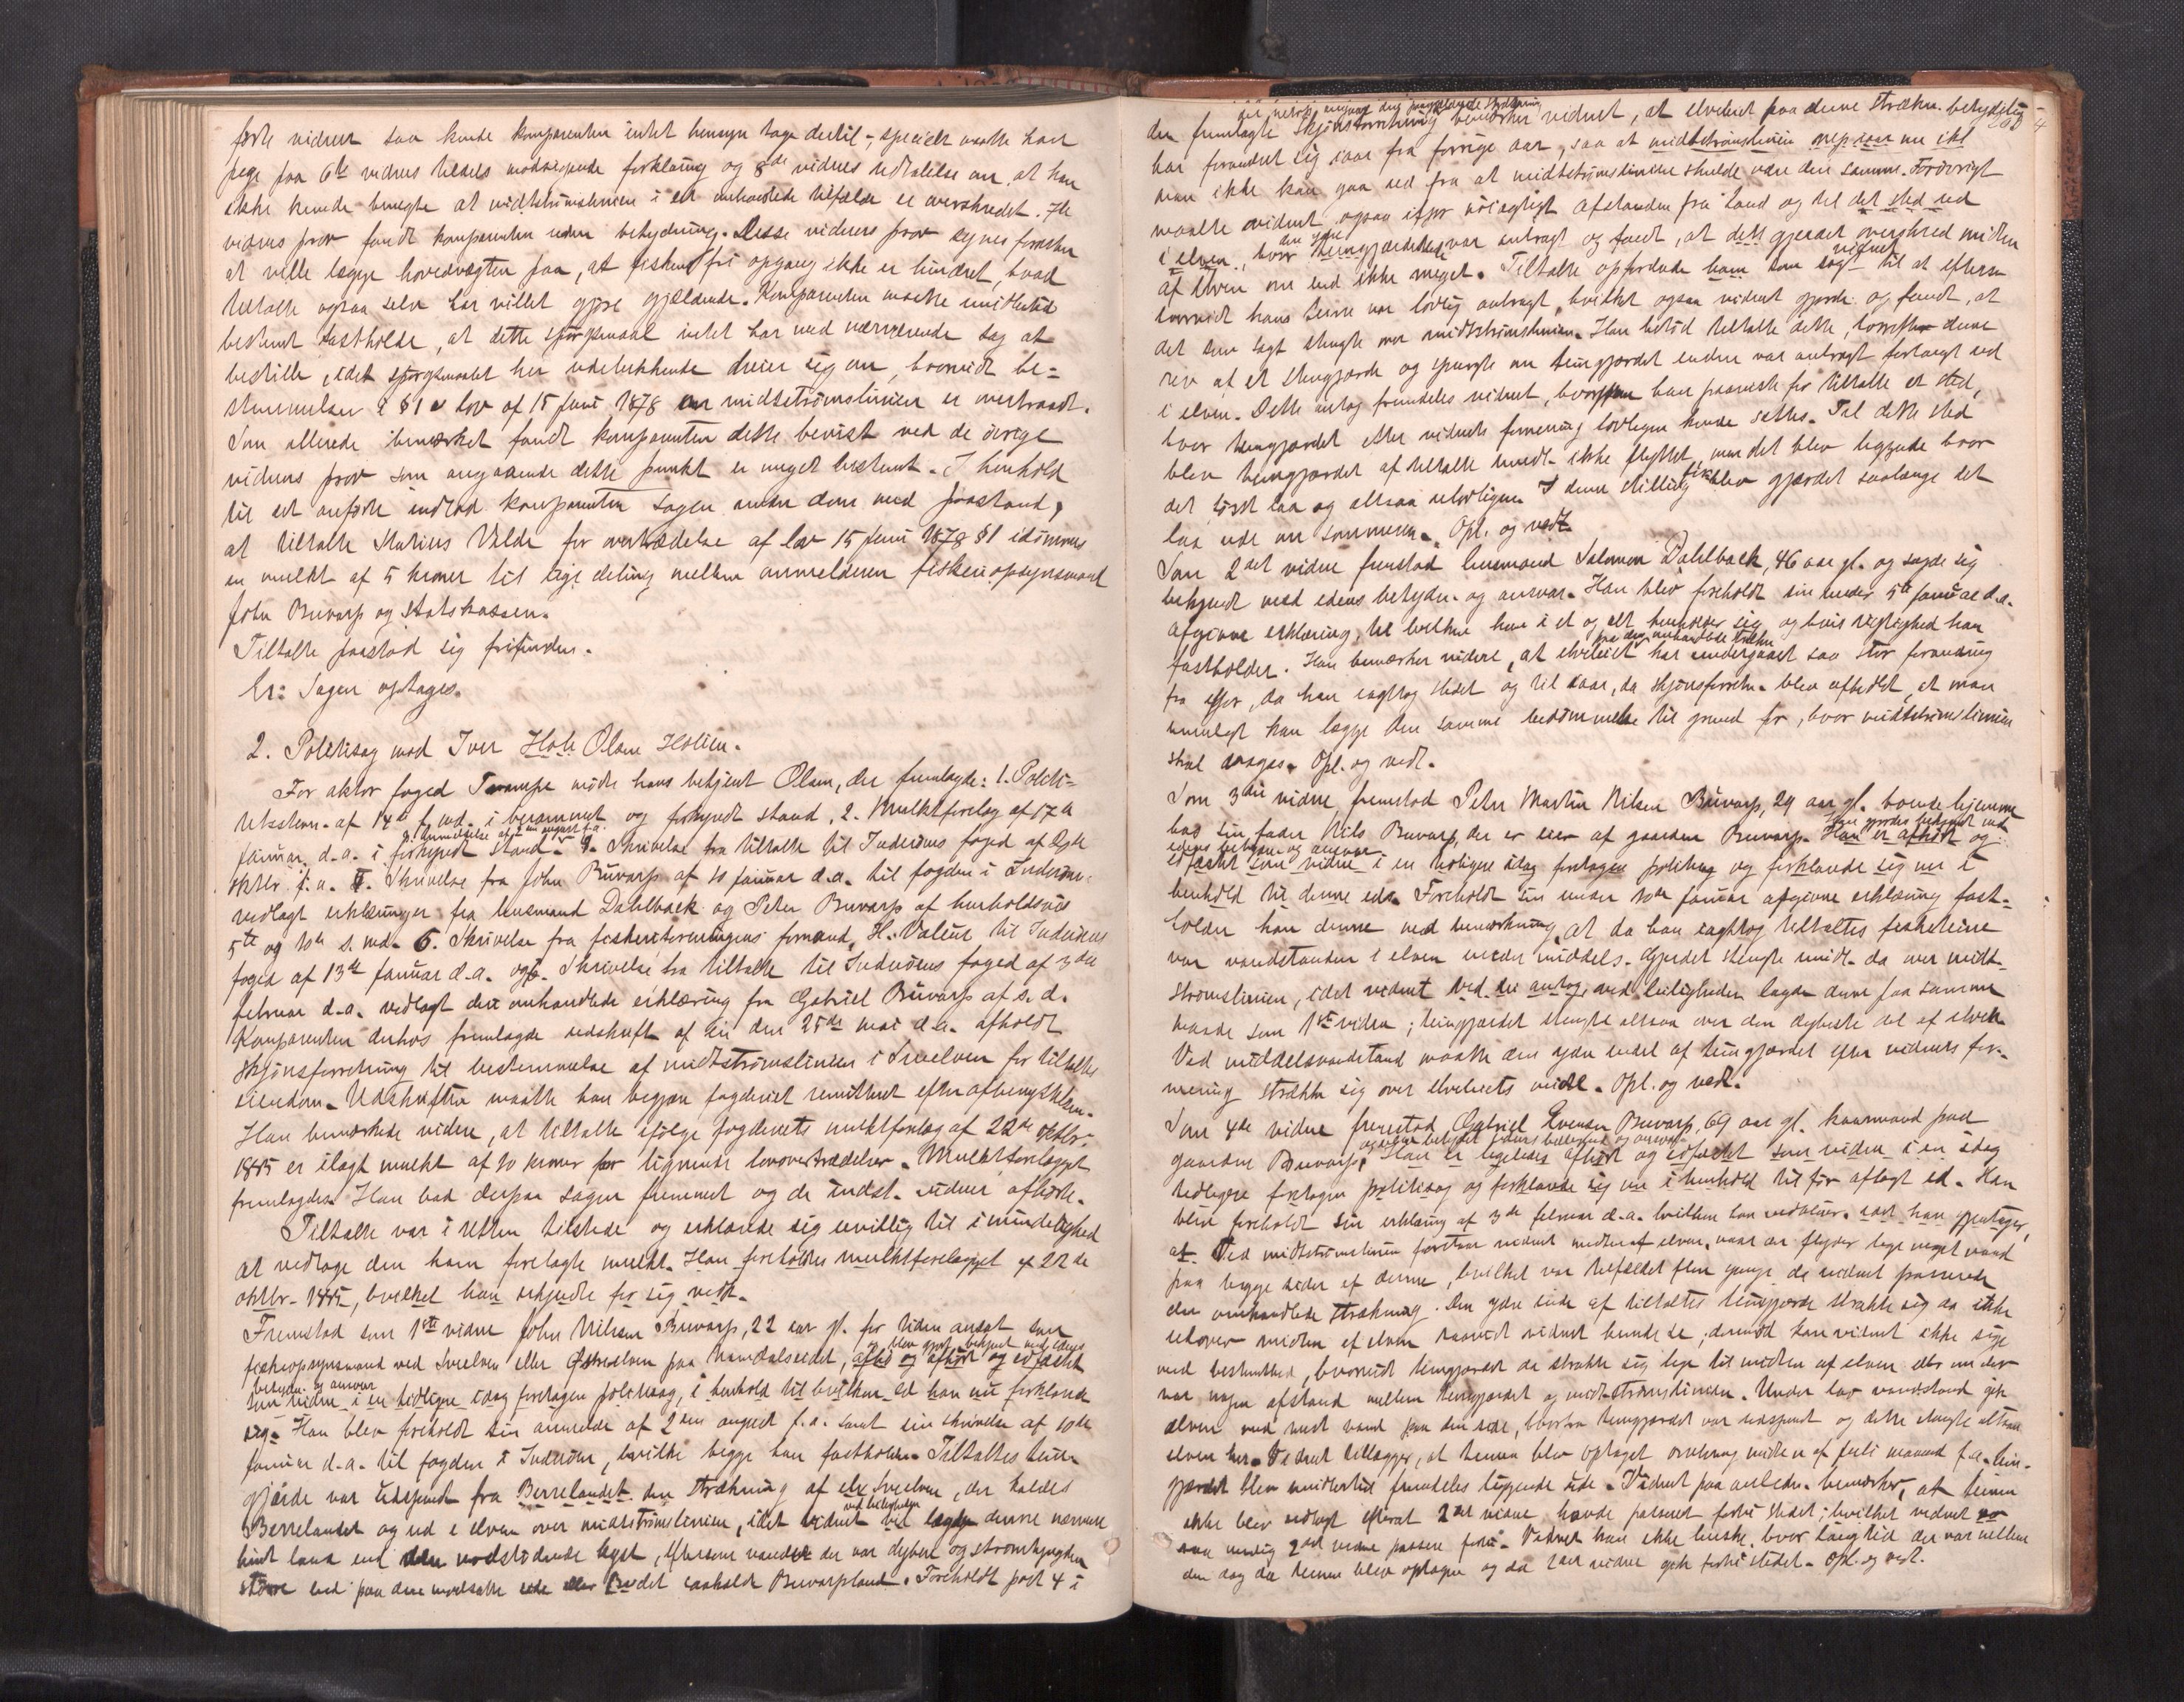 førte vidner saa kunde komparenten intet hensyn tage dertil -, specielt maatte han
pege paa 6te vidnes tildels modsigende forklaring og 8de vidnes udtalelse om, at han
ikke kunde benegte at midtstrømslinien i det omhandlede tilfælde er overskredet. 7de
vidnes prov fandt komparenten uden betydning. Disse vidners prov synes forøvrigt
at ville lægge hovedvægten paa, at fiskens fri opgang ikke er hindret, hvad
tiltalte ogsaa selv har villet gjøre gjældende. Komparenten maatte imidlertid
bestemt fastholde, at dette spørgsmaal intet har med nærværende sag at
bestille, idet spørgsmaalet her udelukkende dreier sig om, hvorvidt be-
stemmelsen i § 1 i lov af 15 juni 1878 om midtstrømslinien er overtraadt.
Som allerede bemærket fandt komparenten dette bevist ved de øvrige
vidners prov som angaaende dette punkt er meget bestemt. I henhold
til det anførte indlod komparenten sagen under dom med paastand,
at tiltalte Marius Valde for overtrædelse af lov 15 juni 1878 § 1 idømmes
en mulkt af 5 kroner til lige deling mellem anmelderen fiskeriopsynsmand
John Buvarp og Statskassen.
Tiltalte paastod sig frifunden.
Er: Sagen optages.
2. Politisag mod Iver Hole Olsen Holien.
For aktor foged Trampe mødte hans betjent Olsen, der fremlagde: 1. Politi-
retsstevn. af 14de f. md. i berammet og forkyndt stand, 2. Mulktforelæg af 17de
januar d.a. i forkyndt stand 3. Anmeldelse af 2den august f.a. 4. Skrivelse fra tiltalte til Inderøens foged af
oktbr. f.a. 5. Skrivelse fra John Buvarp af 10 januar d.a. til fogden i Inderøen
vedlagt erklæringer fra lensmand Dahlback og Peter Buvarp af henholdsvis
5te og 10de s. md. 6. Skrivelse fra fiskeriforeningens formand, H. Valeur til Inderøens
foged af 13de januar d.a. og 7. Skrivelse fra tiltalte til Inderøens foged af 3die
februar d.a. vedlagt den omhandlede erklæring fra Gabriel Buvarp af s. d.
Komparenten derhos fremlagde udskrift af en den 25de mai d.a. afholdt
skjønsforretning til bestemmelse af midtstrømslinien i Sverelven for tiltaltes
eiendom. Udskriften maatte han begjære fogderiet remitteret efter afbenyttelsen.
Han bemærkede videre, at tiltalte ifølge fogderiets mulktforelæg af 22de oktbr.
1885 er ilagt mulkt af 10 kroner for lignende lovovertrædelser. Mulktforelægget
fremlagdes. Han bad derpaa sagen fremmet og de indst. vidner afhørte.
Tiltalte var i retten tilstede og erklærede sig uvillig til i mindelighed
at vedtage den ham forelagte mulkt. Han foreholdtes mulktforelægget af 22de
oktbr. 1885, hvilket han erkjendte for sig vedt.
Fremstod som 1ste vidne John Nilsen Buvarp, 22 aar gl. for tiden ansat som
fiskeopsynsmand ved Sverelven eller Østerelven paa Namdalseidet, blev gjort bekjent med edens
betydn. og ansvar som vidne i en tidligere idag foretagen politisag, i henhold til hvilken ed han nu forklarede
sig. Han blev foreholdt sin anmeldelse af 2den august f.a. samt sin skrivelse af 10de
januar d.a. til fogden i Inderøen, hvilke begge han fastholdt. Tiltaltes teine
gjærde var udspændt fra Berrelandet den strækning af elv Sverelven, der kaldes
Berrelandet og ud i elven over midtstrømslinien, idet vidnet ved leiligheden lagde denne nærmere
hint land end den modstødende kyst, eftersom vandet der var dybere og strømhyngden
større end paa den modsatte side eller Bredet saakaldt Buvarpland. Foreholdt post 4 i
den fremlagte skjønsforretning bemærker vidnet, at elveleiet paa denne strækn. betydelig
har forandret sig siden fra forrige aar, saa at midtstrømslinien nu ikke
man ikke kan gaa ud fra at midtstrømslinien skulde være den samme. Forøvrigt
maalte vidnet ogsaa ifjor nøiagtigt afstanden fra land og til det sted ud
i elven, hvor teingjærdet var anbragt og fandt, at dette gjærdet overskred midten
af elven om end ikke meget. Tiltalte opfordrede ham som vidnet til at efterse
hvorvidt hans teine var lovlig anbragt, hvilket ogsaa vidnet gjorde og fandt, at
det som sagt stengte over midtstrømslinien. Han betød tiltalte dette, hvorefter denne
rev af et stengjærde og spurgte om teingjærdet endnu var anbragt forlangt ud
i elven. Dette antog fremdeles vidnet, hvorpaa han paaviste for tiltalte et sted,
hvor teingjærdet efter vidnets formening lovligen kunde settes. Til dette sted
blev teingjærdet af tiltalte imidl. ikke flyttet, men det blev liggende hvor
det først laa og altsaa ulovligen. I denne stilling blev gjærdet saalænge det
laa ude om sommeren. Opl. og vedt.
Som 2det vidne fremstod lensmand Salomon Dahlback, 46 aar gl. og sagde sig
bekjendt med edens betydn. og ansvar. Han blev foreholdt sin under 5te januar d.a.
afgivne erklæring, til hvilken han i et og alt henholder sig og hvis rigtighed han
fastholder. Han bemærker videre, at elveleiet paa den omhandlede strækn. har undergaaet saa stor forandring
fra ifjor, da han iagttog stedet og til iaar, da skjønsforretn. blev afholdt, at man
umuligt kan lægge den samme bedømmelse til grund for, hvor midtstrømslinien
skal drages. Opl. og vedt.
Som 3die vidne fremstod Peter Martin Nilsen Buvarp, 29 aar gl. boende hjemme
hos sin fader Nils Buvarp, der er eier af gaarden Buvarp. Han gjordes bekjendt med
edens betydn. og ansvar. Han er afhørt og
edfæstet som vidne i en tidligere idag foretagen politisag og forklarede sig nu i
henhold til denne ed. Foreholdt sin under 10de januar afgivne erklæring fast-
holder han denne ved bemærkning, at da han iagttog tiltaltes fisketeine
var vandstanden i elven under middels. Gjærdet stengte imidl. da over midt-
strømslinien, idet vidnet ved leiligheden lagde denne paa samme
maade som 1ste vidne; teingjærdet stengte altsaa over den dybeste del af elven
Ved middelsvandstand maatte den ydre endel af teingjærdet efter vidnets for-
mening strække sig over elveleiets midte. Opl. og vedt.
Som 4de vidne fremstod Gabriel Evensen Buvarp, 69 aar gl. kaarmand paa
gaarden Buvarp, Han er ligeledes afhørt og edfæstet som vidne i en idag
tidligere foretagen politisag og forklarede sig nu i henhold til før aflagt ed. Han
blev foreholdt sin erklæring af 3de februar d.a. hvilken han vedbliver.
at Ved midtstrømslinien forstaar vidnet midten af elven, naar der flyder lige meget vand
paa begge sider af denne, hvilket var tilfældet flere gange da vidnet passerede
den omhandlede strækning. Den ydre ende af tiltaltes teingjærde strakte sig da ikke
udover midten af elven saavidt vidnet kunde se; derimod kan vidnet ikke sige
med bestemthed, hvorvidt teingjærdet da strakte sig lige til midten af elven eller om der
var nogen afstand mellem teingjærdet og midtstrømslinien. Under lav vandstand gik
elven med mest vand paa den side, hvorfra teingjærdet var udspændt og dette stengte altsaa
elven her. Vidnet tillægger, at teinen blev optaget omkring midten af juli maaned f.a. tein-
gjærdet blev imidlertid fremdeles liggende ude. Vidnet paa anledn. bemærker, at teinen
ikke blev udlagt efterat 2det vidne havde passeret forbi stedet; hvilket vidnet
saa nemlig 2det vidne passere forbi. Vidnet kan ikke huske, hvor lang tid der var mellem
den dag da teinen blev optagen og da 2det vidne gik forbi stedet. Opl. og vedt.